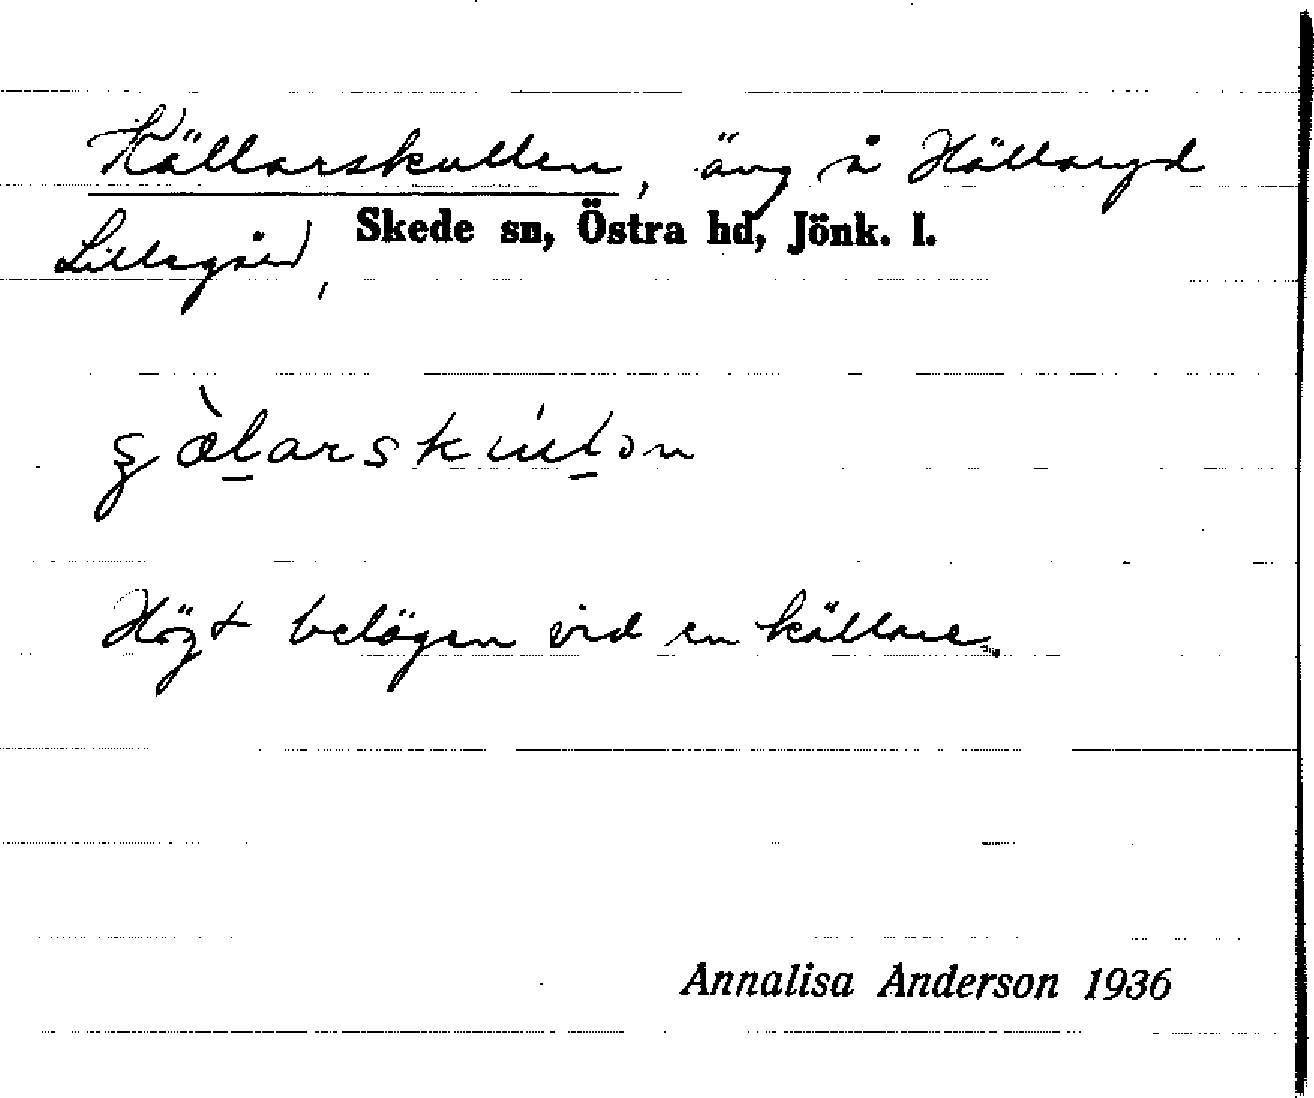 Källarskullen, äng å Hällaryd
Lillegård, Skede sn, Östra hd, Jönk. l.
Högt belägen vid en källare.
Annalisa Anderson 1936